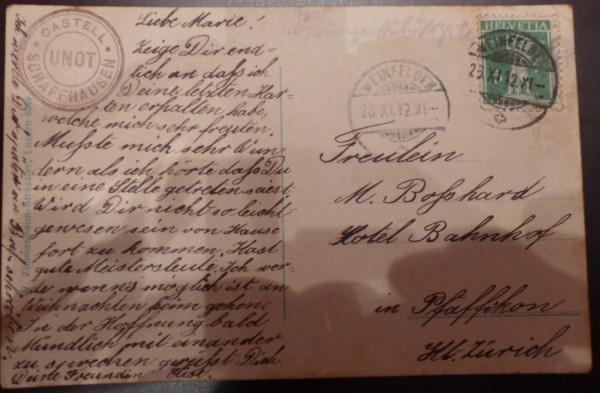 CASTELL
UNOT
SCHAFFHAUSEN
Liebe Marie!
Zeige Dir end-
lich an daß ich
Deine letzten Kar-
ten erhalten habe,
welche mich sehr freuten.
Mußte mich sehr Wun-
dern als ich hörte daß Du
in eine Stelle getreten seiest
Wird Dir nicht so leicht
gewesen sein von Hause
fort zu kommen. Hast
gute Meistersleute. Ich wer-
de wenn's möglich ist an
Weihnachten heim gehen.
In der Hoffnung bald
Mündlich mit einander
zu sprechen grüßt Dich
Deine Freundin
Ich werde Dir
HELVETIA
WEINFELDEN
26.XI.12.XI-
WEINFELDEN
26.XI.12.XI-
Freulein
M. Boßhard
Hotel Bahnhof
in Pfäffikon
Kt. Zürich